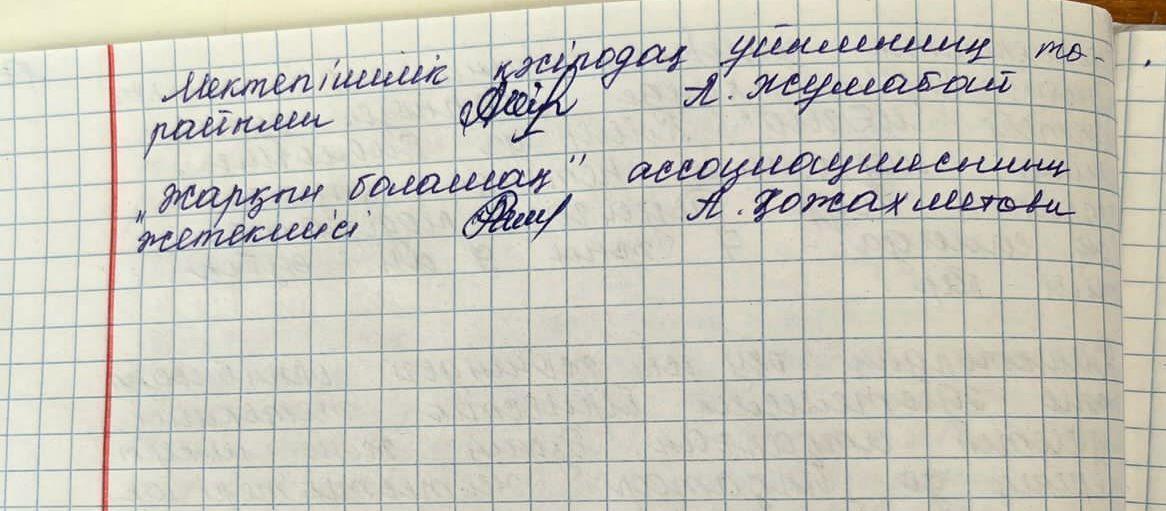 Мектепішілік кәсіподақ ұйымының тө-
райымы А. Жумабай
"Жарқын болашақ" ассоциациясының
жетекшісі А. Қожахметова